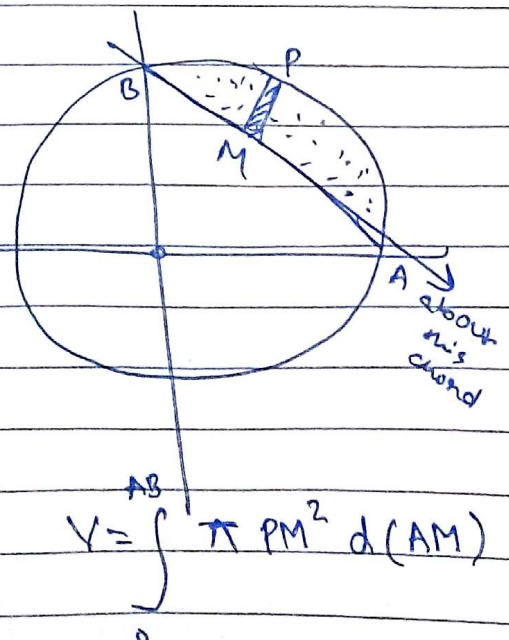 B
P
M
A
about
this
chord
AB
V = ∫ π PM² d(AM)
0